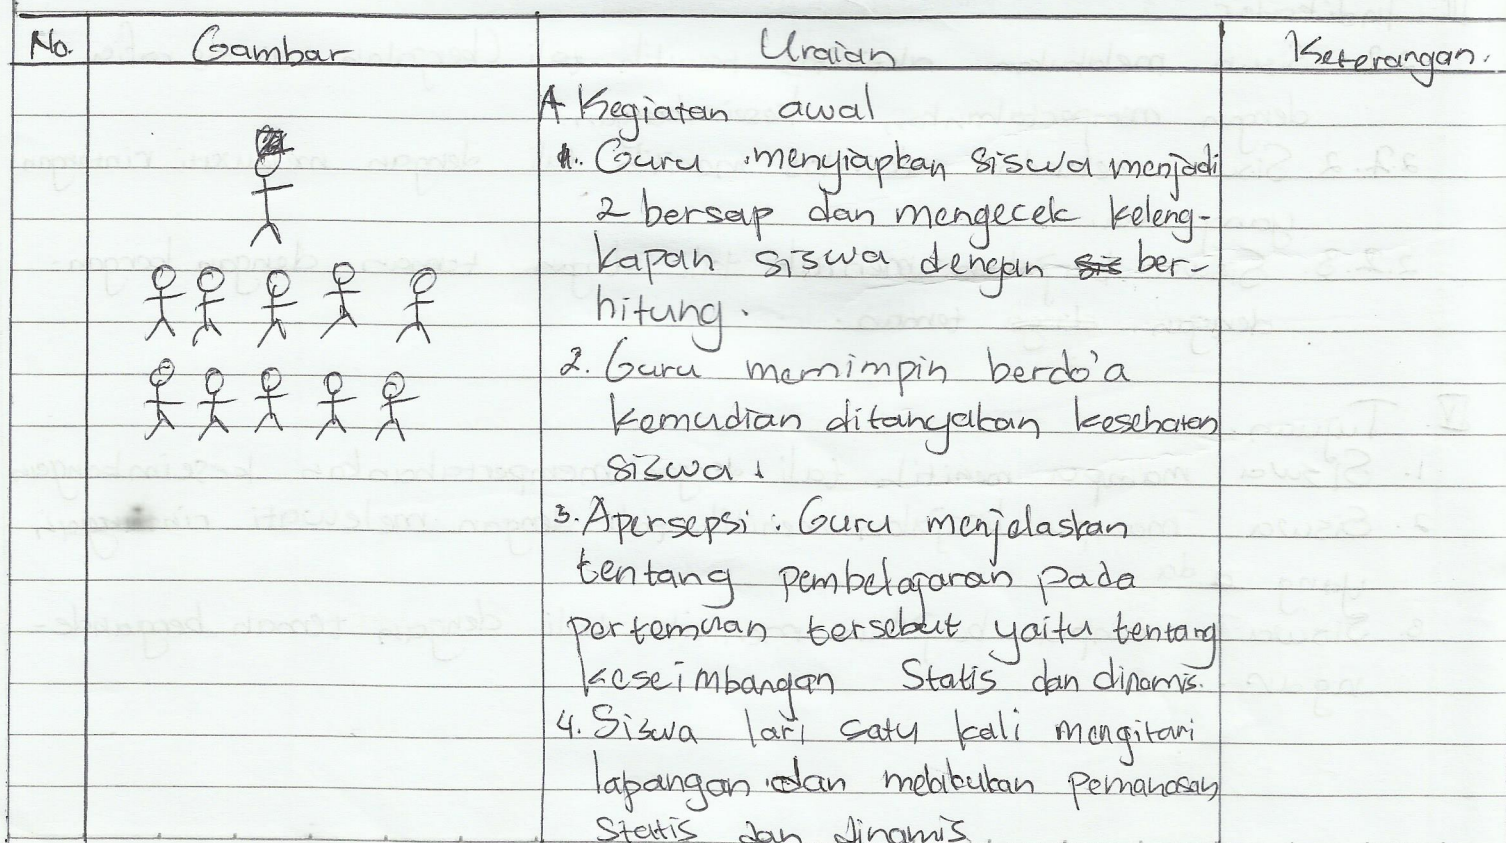 No. Gambar Uraian Keterangan.
A Kegiatan awal
1. Guru menyiapkan siswa menjadi
2 bersap dan mengecek keleng-
kapan siswa dengan ber-
hitung.
2. Guru memimpin berdo'a
kemudian ditanyakan kesehatan
siswa.
3. Apersepsi : Guru menjelaskan
tentang pembelajaran pada
pertemuan tersebut yaitu tentang
keseimbangan Statis dan dinamis.
4. Siswa lari satu kali mengitari
lapangan dan melakukan pemanasan
Statis dan dinamis.